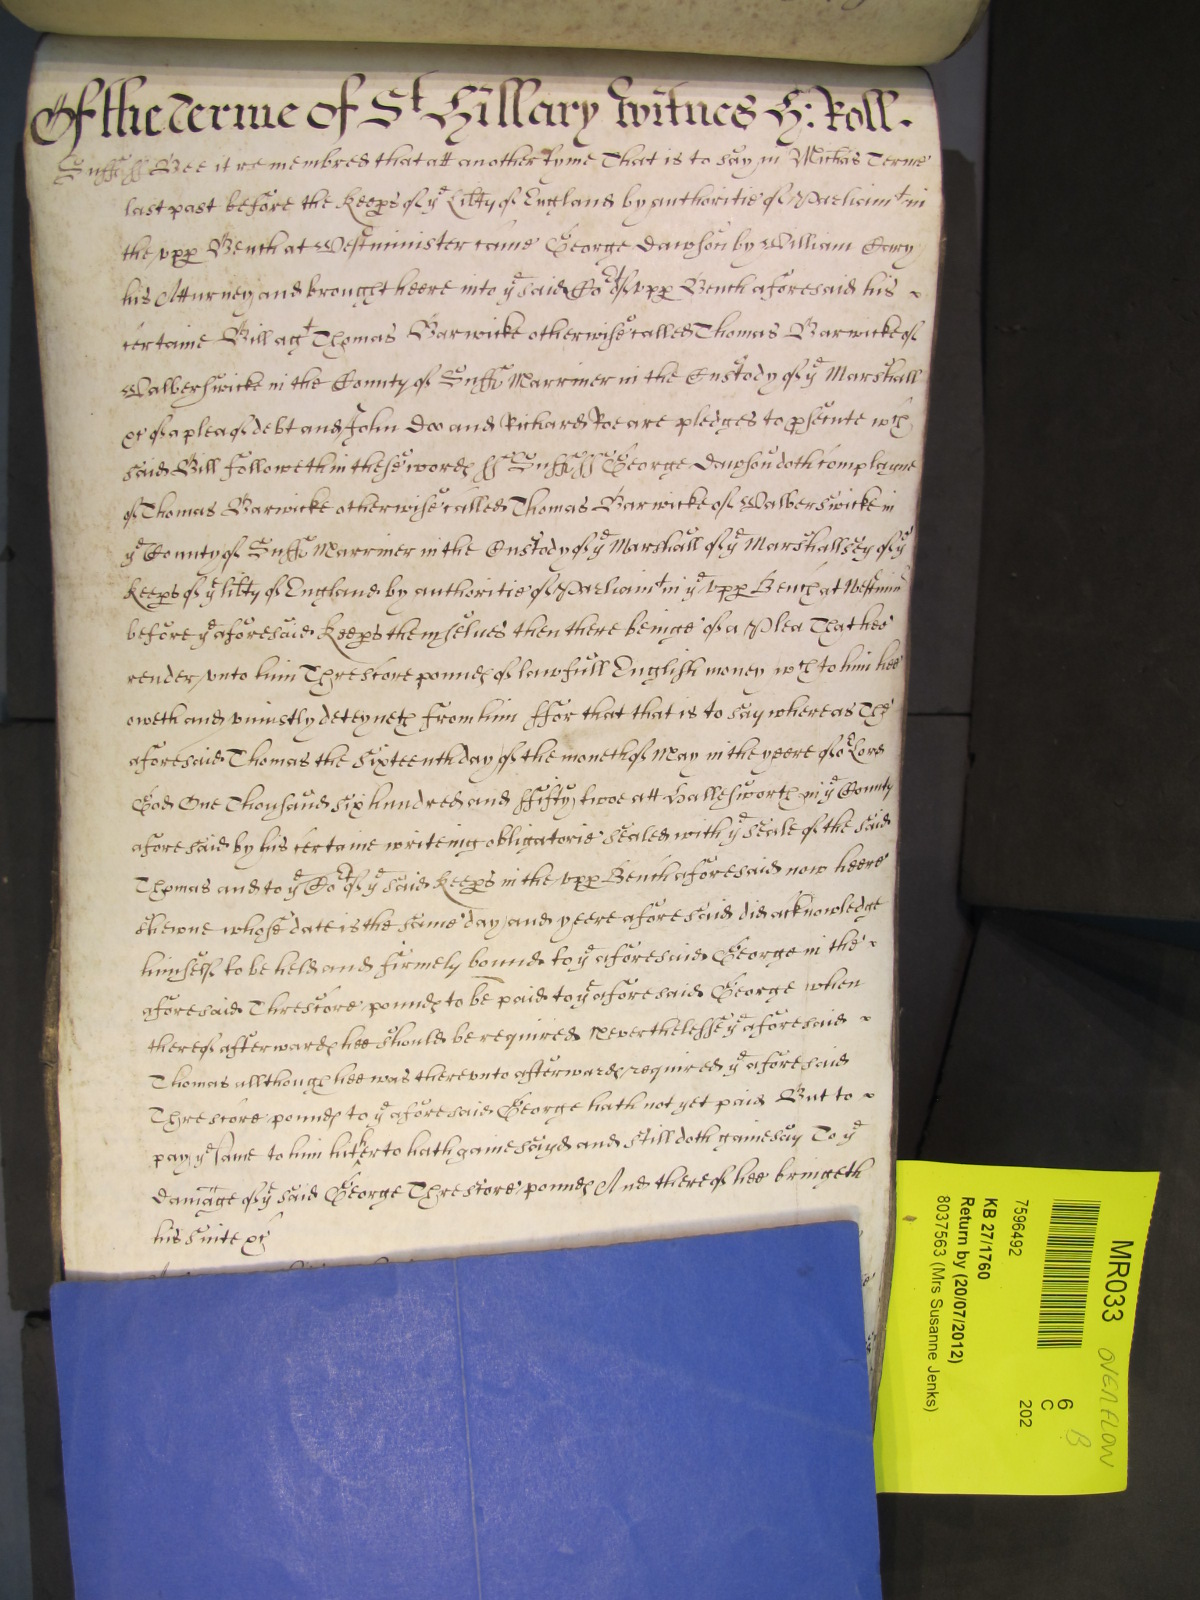 Of the Terme of St Hillary Witnes H: Roll.
Suff ss Bee it remembred that att another tyme That is to say in Michās Terme
last past before the Keeps of ye Libty of England by authoritie of Parliamt in
the upp Bench at Westminister came George Dawson by William
his Atturney and brought heere into ye said Cort of upp Bench aforesaid his
certaine Bill agt Thomas Barwicke otherwise called Thomas Barwicke of
Walberswicke in the County of Suff Marriner in the Custody of ye Marshall
&c of a plea of debt and John Doo and Richard Roe are pledges to psecute wch
said Bill followeth in these words ss Suff ss George Dawson doth complayne
of Thomas Barwicke otherwise called Thomas Barwicke of Walberswicke in
ye County of Suff Marriner in the Custody of ye Marshall of ye Marshallsey of ye
Keeps of ye libty of England by authoritie of Parliamt in ye upp Bench at Westmin
before ye aforesaid Keeps themselues then there beinge of a Plea That hee
render unto him Threscore pounds of lawfull English money wch to him hee
oweth and uniustly deteyneth from him ffor that that is to say whereas The
aforesaid Thomas the sixteenth day of the moneth of May in the yeere of or Lord
God One Thousand six hundred and ffifty twoe att Hallesworth in ye County
aforesaid by his certaine writeing obligatorie sealed with ye seale of the said
Thomas and to ye Cort of ye said Keeps in the upp Bench aforesaid now heere
shewne whose date is the same day and yeere aforesaid did acknowledge
himself to be held and firmely bound to ye aforesaid George in the
aforesaid Threscore pounds to be paid to ye aforesaid George when
thereof afterwards hee should be required Neverthelesse ye aforesaid
Thomas allthough hee was thereunto afterwards required ye aforesaid
Threscore pounds to ye aforesaid George hath not yet paid But to
pay ye same to him hitherto hath gamesayd and still doth gamesay To ye
damage of ye said George Threscore pounds And thereof hee bringeth
his suite &c
MR033
OVERFLOW
B
6
C
202
7596492
KB 27/1760
Return by (20/07/2012)
8037563 (Mrs Susanne Jenks)